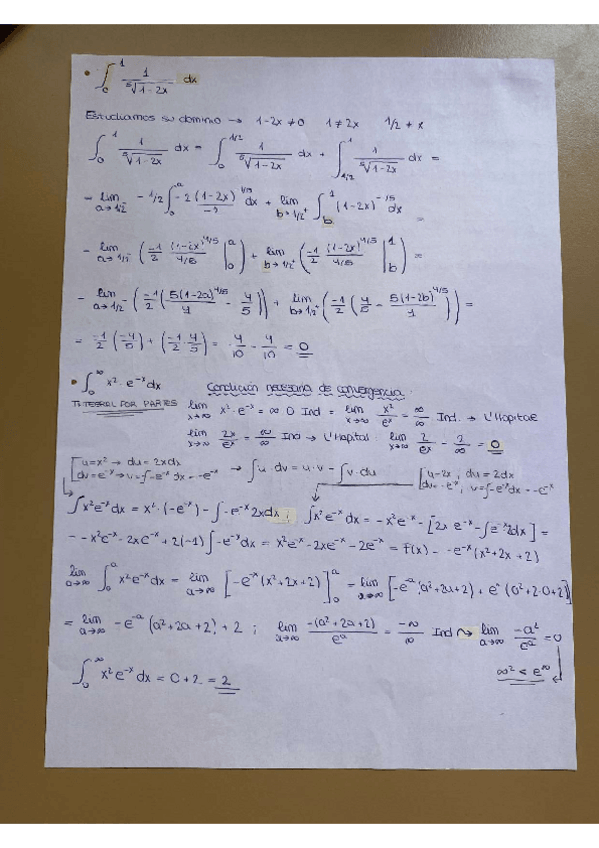 • ∫₀¹ 1/⁵√(1-2x) dx
Estudiamos su dominio → 1-2x ≠ 0 1 ≠ 2x 1/2 ≠ x
∫₀¹ 1/⁵√(1-2x) dx = ∫₀^(1/2) 1/⁵√(1-2x) dx + ∫_(1/2)^1 1/⁵√(1-2x) dx =
= lim a→1/2⁻ -1/2 ∫₀^a -2(1-2x) dx + lim b→1/2⁺ ∫_b^1 (1-2x)^(-1/5) dx =
= lim a→1/2⁻ (-1/2 (1-2x)^(4/5)/(4/5) |₀^a) + lim b→1/2⁺ (-1/2 (1-2x)^(4/5)/(4/5) |_b^1) =
= lim a→1/2⁻ (-1/2 (5(1-2a)^(4/5)/4 - 4/5)) + lim b→1/2⁺ (-1/2 (4/5 - 5(1-2b)^(4/5)/1)) =
= -1/2 (-4/5) + (-1/2 · 4/5) = 4/10 - 4/10 = 0
• ∫₀^∞ x² · e^(-x) dx Condición necesaria de convergencia
INTEGRAL POR PARTES lim x→∞ x² · e^(-x) = ∞ · 0 Ind = lim x→∞ x²/e^x = ∞/∞ Ind. → L'Hopital
lim x→∞ 2x/e^x = ∞/∞ Ind → L'Hopital lim x→∞ 2/e^x = 2/∞ = 0
[u=x² → du=2xdx
dv=e^(-x) → v=∫-e^(-x)dx = -e^(-x) → ∫u·dv = u·v - ∫v·du [u=2x, du=2dx
dv=-e^(-x), v=∫-e^(-x)dx = -e^(-x)
∫x²e^(-x)dx = x²·(-e^(-x)) - ∫-e^(-x)2xdx; ∫x²e^(-x)dx = -x²e^(-x) - [2x e^(-x) - ∫e^(-x)2dx] =
= -x²e^(-x) - 2xe^(-x) + 2(-1)∫-e^(-x)dx = x²e^(-x) - 2xe^(-x) - 2e^(-x) = F(x) = -e^(-x)(x²+2x+2)
lim a→∞ ∫₀^a x²e^(-x)dx = lim a→∞ [-e^(-x)(x²+2x+2)]₀^a = lim a→∞ [-e^(-a)(a²+2a+2) + e^0(0²+2·0+2)]
= lim a→∞ -e^(-a)(a²+2a+2) + 2; lim x→∞ -(a²+2a+2)/e^a = -∞/∞ Ind ↝ lim a→∞ -a²/e^a = 0
∫₀^∞ x²e^(-x)dx = 0 + 2 = 2 ∞² < e^∞